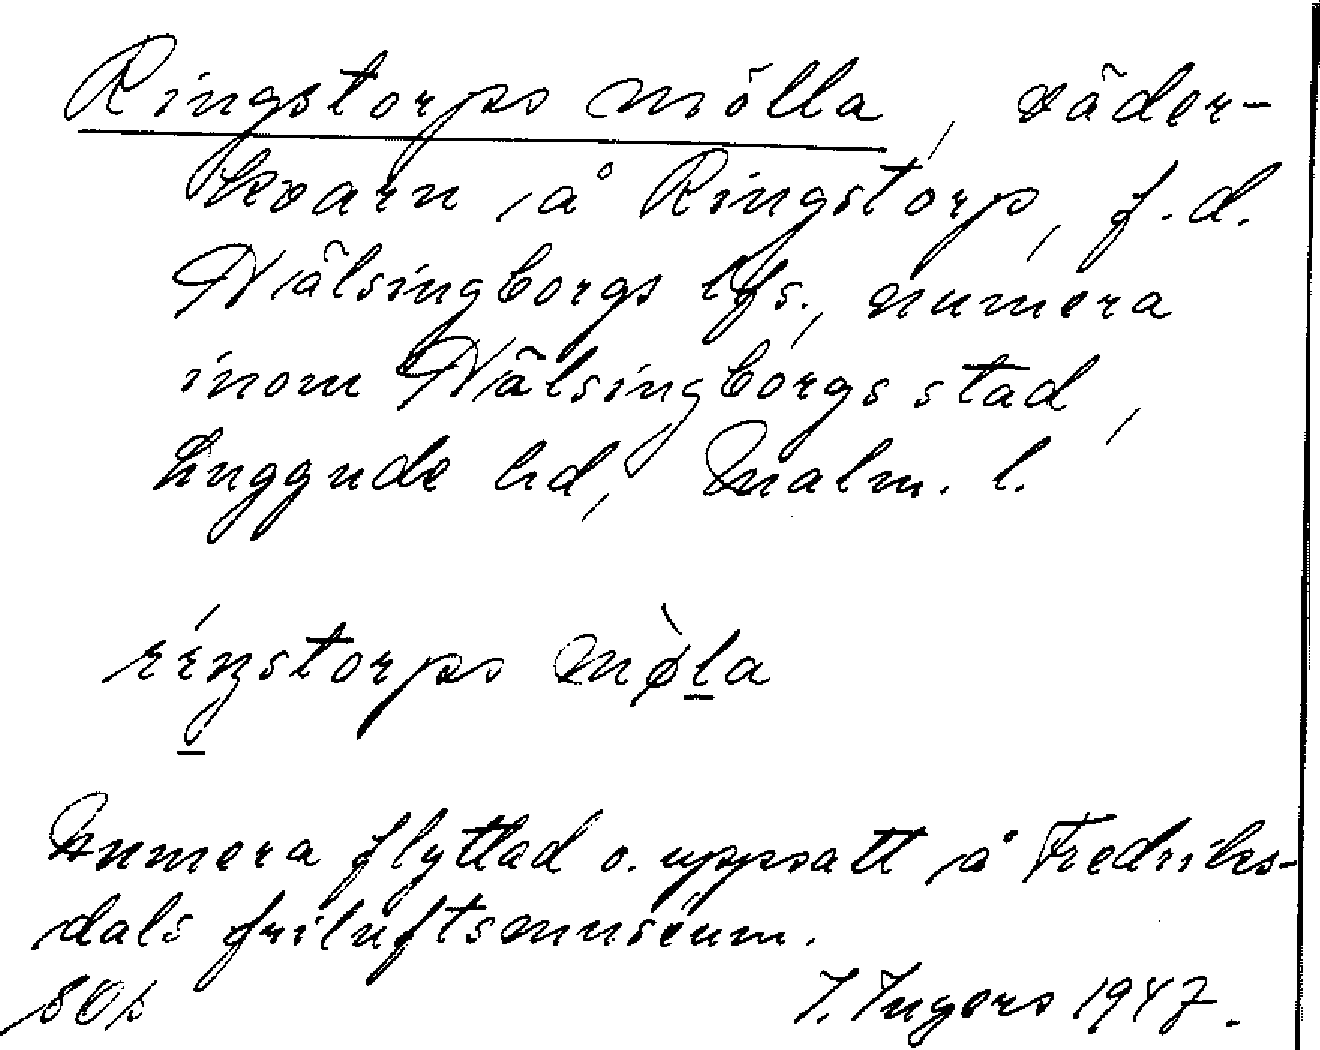 Ringstorps mölla, väder-
kvarn å Ringstorp, f.d.
Hälsingborgs lfs., numera
inom Hälsingborgs stad,
Luggude hd, Malm. l.
ríŋstorps mø̀la
Numera flyttad o. uppsatt å Fredriks-
dals friluftsmuséum.
I. Ingers 1947.